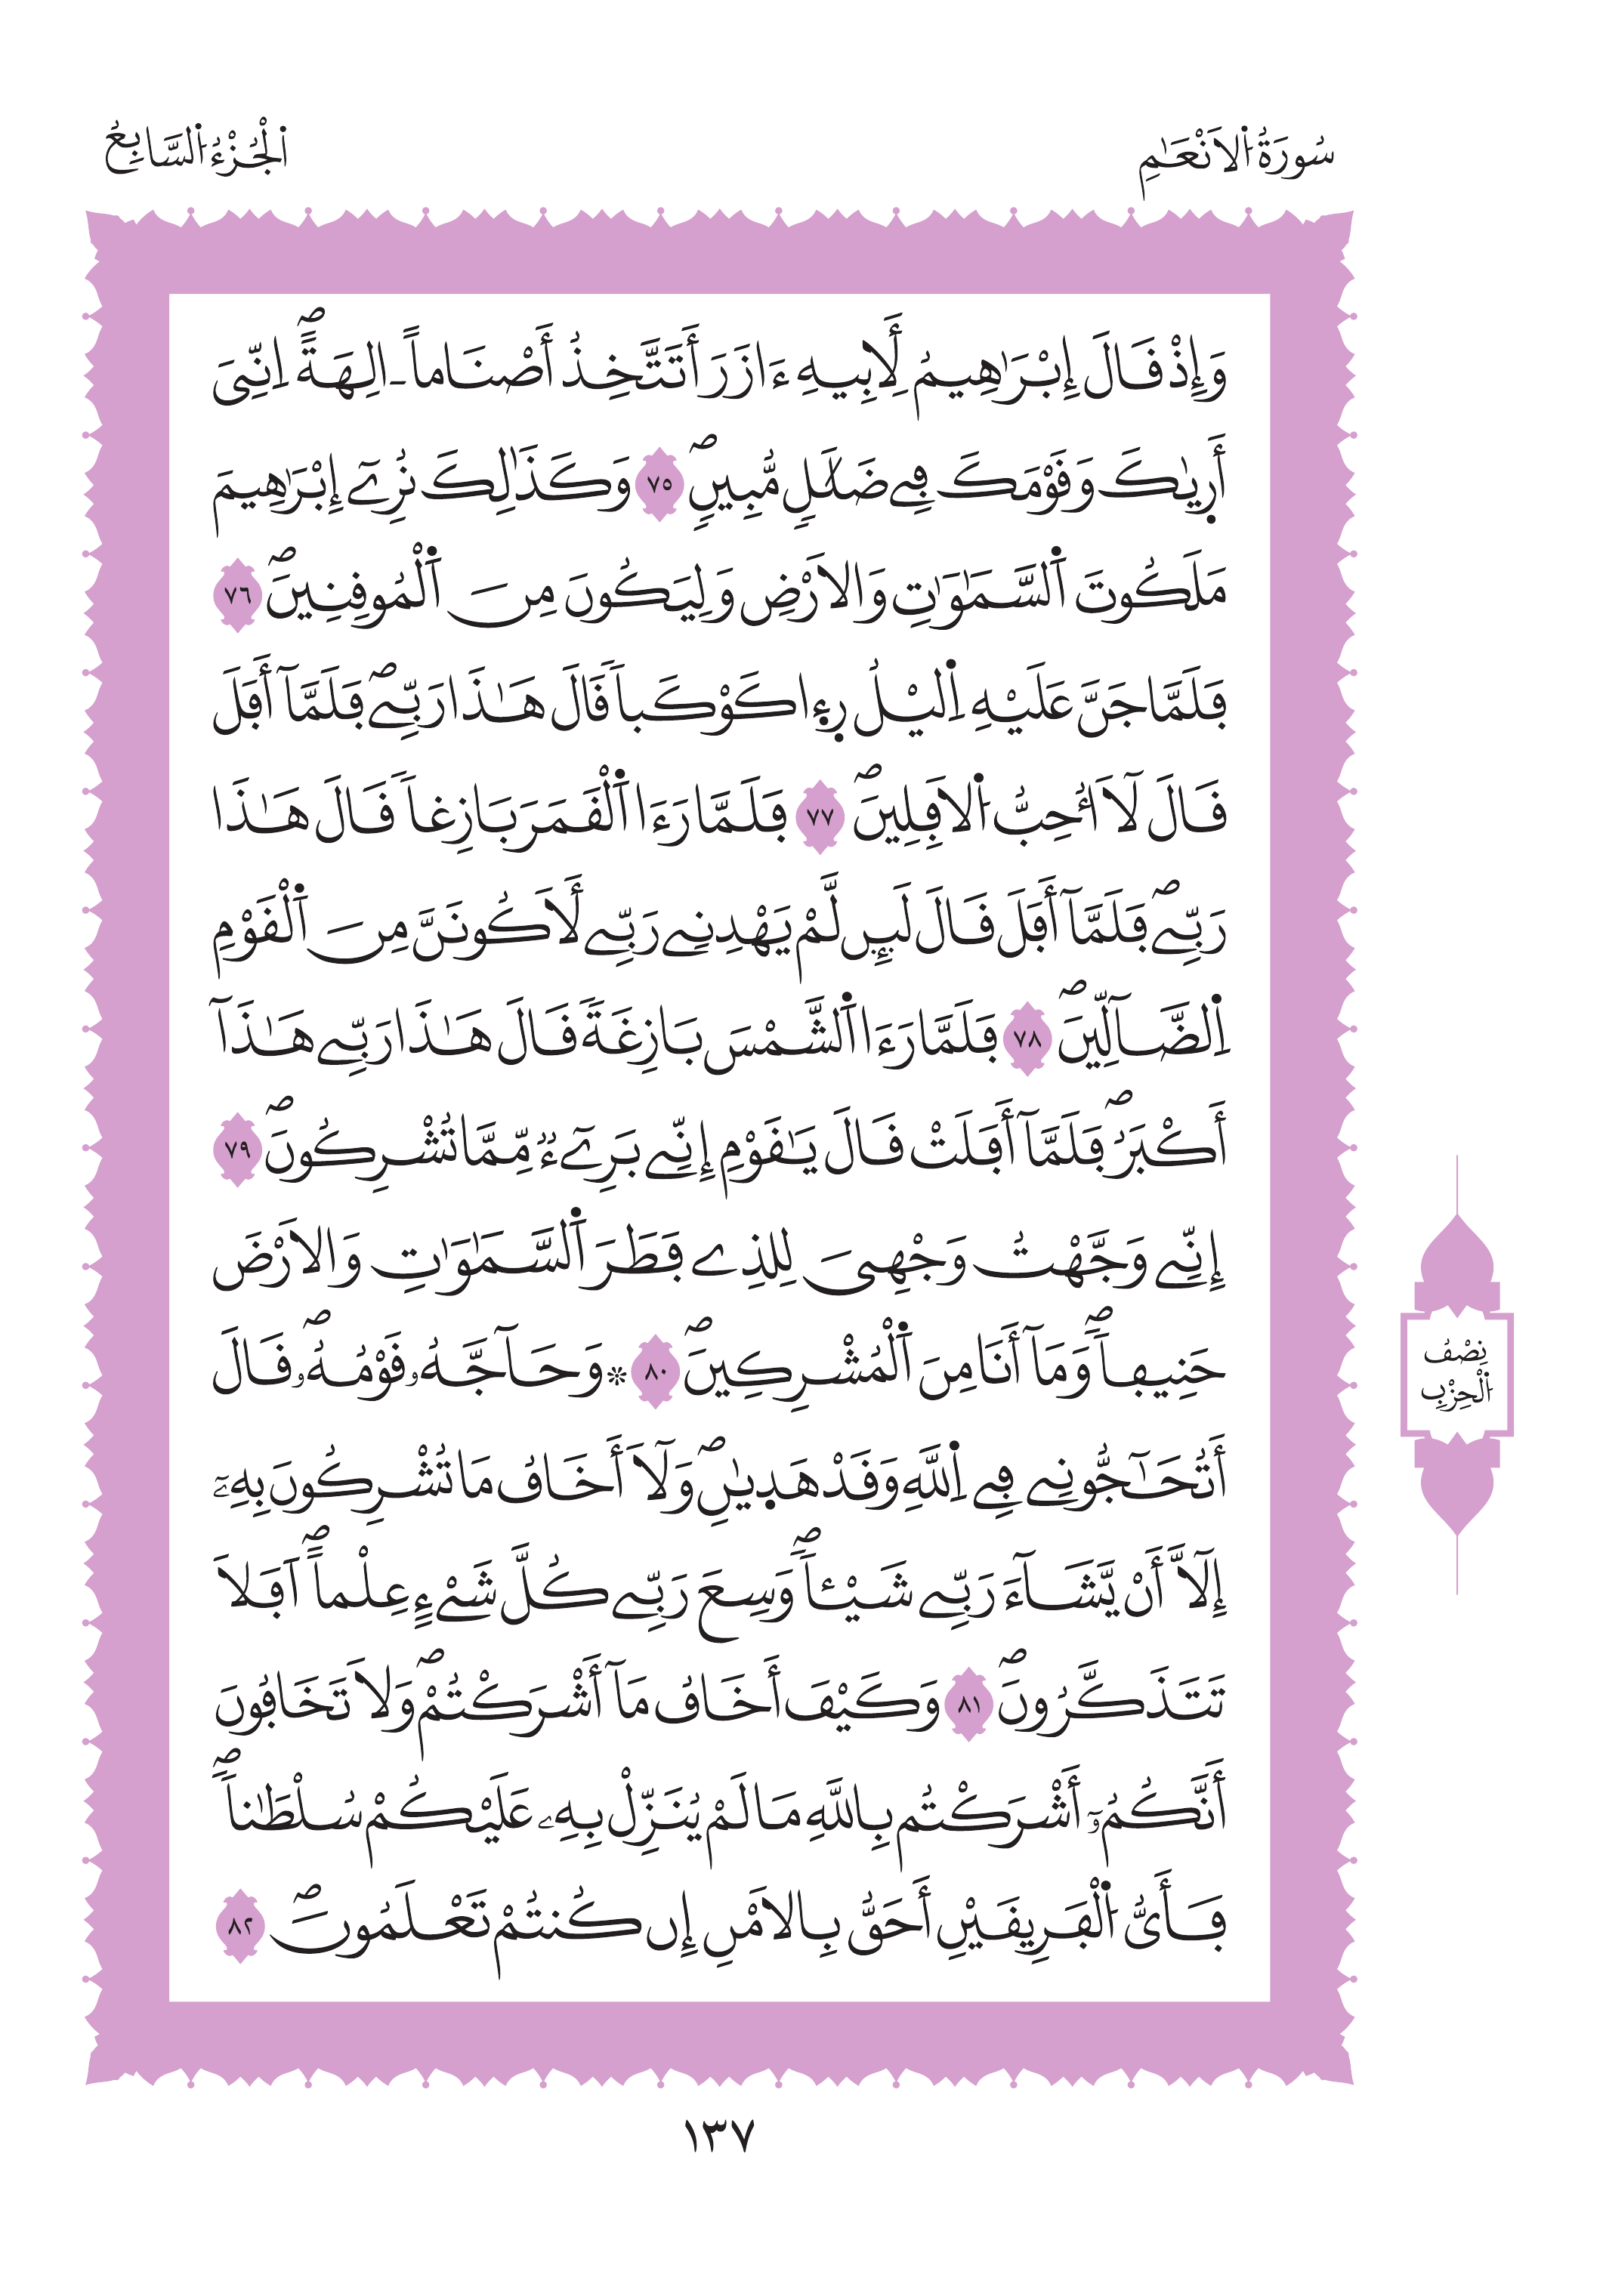 سُورَةُ اُ۬لَانْعَٰمِ
اَ۬لْجُزْءُ اُ۬لسَّابِعُ
وَإِذْ قَالَ إِبْرَٰهِيمُ لِأَبِيهِ ءَازَرَ أَتَتَّخِذُ أَصْنَاماً ـالِهَةًۖ اِنِّيَ
أَر۪يٰكَ وَقَوْمَكَ فِے ضَلَٰلٖ مُّبِينٖۖ ٧٥ وَكَذَٰلِكَ نُرِےٓ إِبْرَٰهِيمَ
مَلَكُوتَ اَ۬لسَّمَٰوَٰتِ وَالَارْضِ وَلِيَكُونَ مِنَ اَ۬لْمُوقِنِينَۖ ٧٦
فَلَمَّا جَنَّ عَلَيْهِ اِ۬ليْلُ ر۪ء۪ا كَوْكَباٗ قَالَ هَٰذَا رَبِّےۖ فَلَمَّآ أَفَلَ
قَالَ لَآ أُحِبُّ اُ۬لَافِلِينَۖ ٧٧ فَلَمَّا رَءَا اَ۬لْقَمَرَ بَازِغاٗ قَالَ هَٰذَا
رَبِّےۖ فَلَمَّآ أَفَلَ قَالَ لَئِن لَّمْ يَهْدِنِے رَبِّے لَأَكُونَنَّ مِنَ اَ۬لْقَوْمِ
اِ۬لضَّآلِّينَۖ ٧٨ فَلَمَّا رَءَا اَ۬لشَّمْسَ بَازِغَةٗ قَالَ هَٰذَا رَبِّے هَٰذَآ
أَكْبَرُۖ فَلَمَّآ أَفَلَتْ قَالَ يَٰقَوْمِ إِنِّے بَرِےٓءٞ مِّمَّا تُشْرِكُونَۖ ٧٩
إِنِّے وَجَّهْتُ وَجْهِيَ لِلذِے فَطَرَ اَ۬لسَّمَٰوَٰتِ وَالَارْضَ
حَنِيفاٗۖ وَمَآ أَنَا مِنَ اَ۬لْمُشْرِكِينَۖ ٨٠ ۞ وَحَآجَّهُۥ قَوْمُهُۥۖ قَالَ
أَتُحَٰٓجُّونِے فِے اِ۬للَّهِ وَقَدْ هَد۪يٰنِۖ وَلَآ أَخَافُ مَا تُشْرِكُونَ بِهِۦٓ
إِلَّآ أَنْ يَّشَآءَ رَبِّے شَيْـٔاٗۖ وَسِعَ رَبِّے كُلَّ شَےْءٍ عِلْماًۖ اَفَلَا
تَتَذَكَّرُونَۖ ٨١ وَكَيْفَ أَخَافُ مَآ أَشْرَكْتُمْۖ وَلَا تَخَافُونَ
أَنَّكُمُۥٓ أَشْرَكْتُم بِاللَّهِ مَا لَمْ يُنَزِّلْ بِهِۦ عَلَيْكُمْ سُلْطَٰناٗۖ
فَأَيُّ اُ۬لْفَرِيقَيْنِ أَحَقُّ بِالَامْنِ إِن كُنتُمْ تَعْلَمُونَۖ ٨٢
نِصْفُ
اُ۬لْحِزْبِ
١٣٧